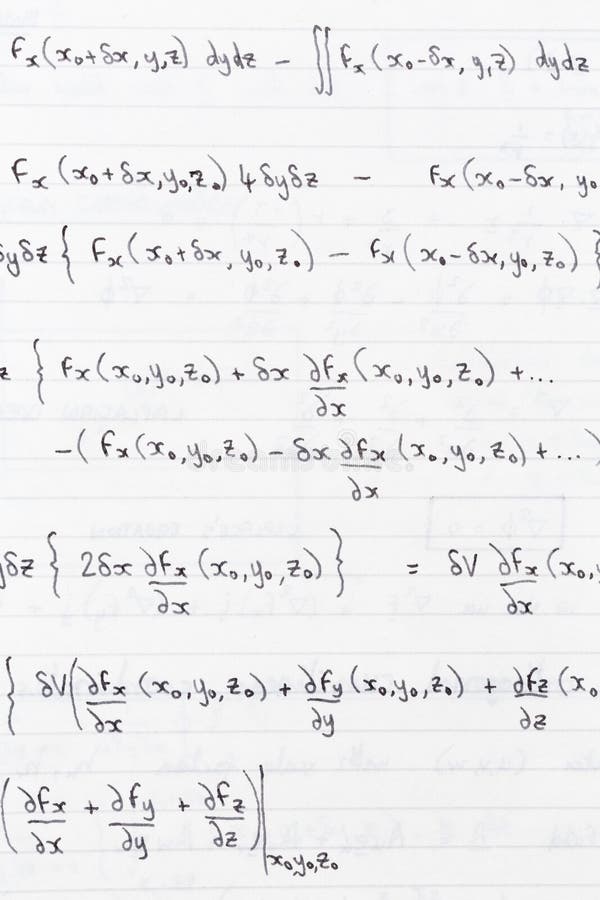 Fx(x₀+δx, y, z) dydz − ∬ Fx(x₀−δx, y, z) dydz
Fx(x₀+δx, y₀, z₀) 4δyδz − Fx(x₀−δx, y₀
δyδz { Fx(x₀+δx, y₀, z₀) − Fx(x₀−δx, y₀, z₀) }
z { Fx(x₀, y₀, z₀) + δx ∂Fx/∂x (x₀, y₀, z₀) + ...
−( Fx(x₀, y₀, z₀) − δx ∂Fx/∂x (x₀, y₀, z₀) + ... )
yδz { 2δx ∂Fx/∂x (x₀, y₀, z₀) } = δV ∂Fx/∂x (x₀,
{ δV( ∂Fx/∂x (x₀, y₀, z₀) + ∂Fy/∂y (x₀, y₀, z₀) + ∂Fz/∂z (x₀
( ∂Fx/∂x + ∂Fy/∂y + ∂Fz/∂z )|x₀y₀,z₀